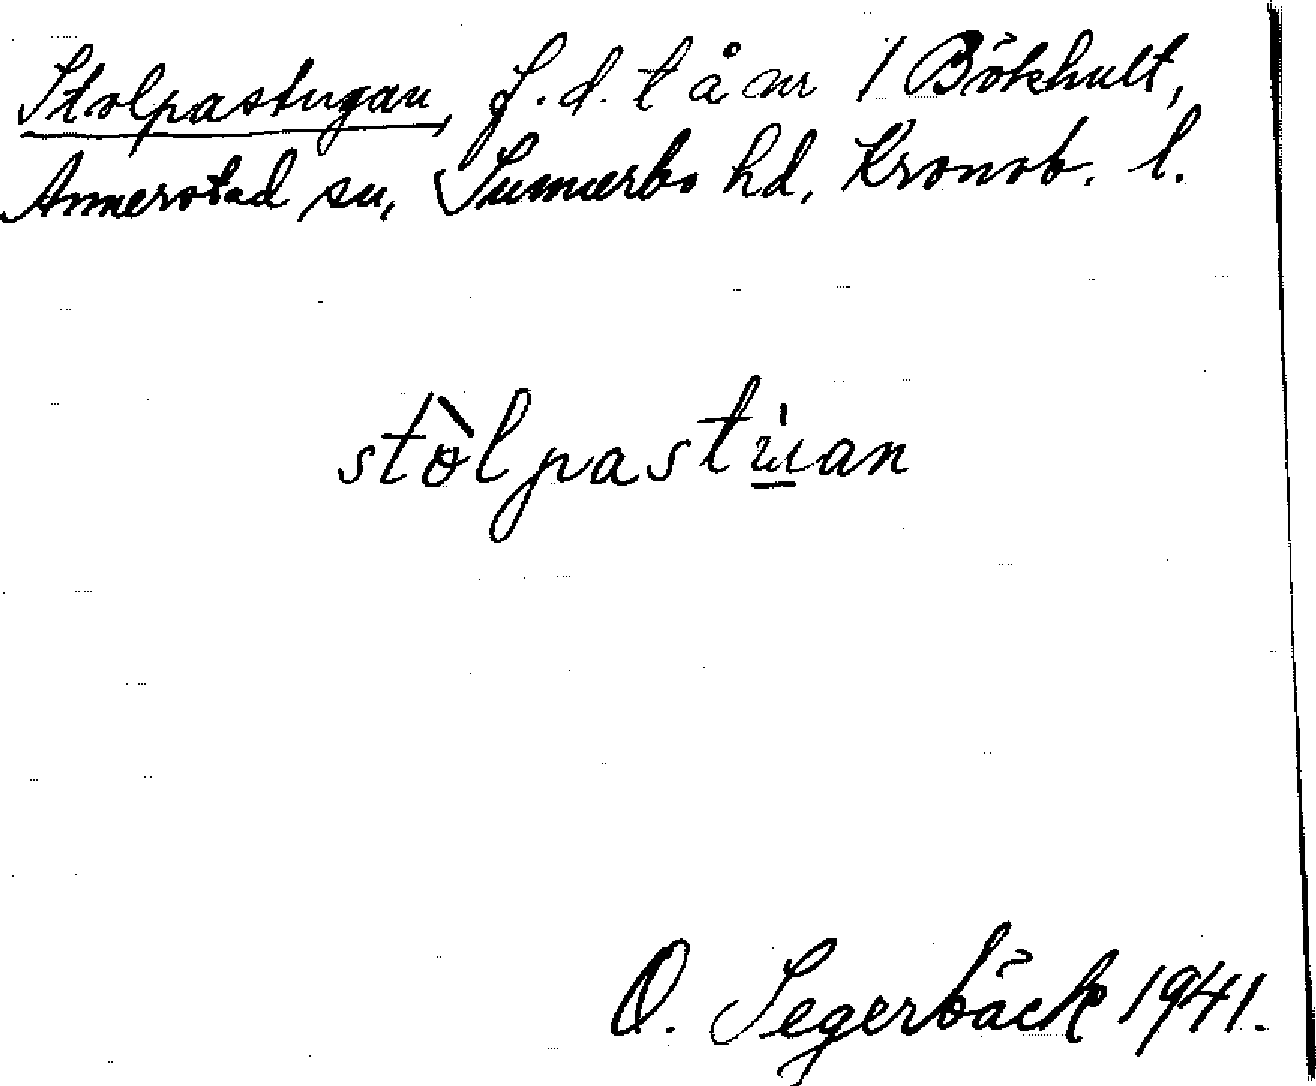 Stolpastugan, f.d. t å nr 1 Bökhult,
Annerstad sn, Sunnerbo hd, Kronob. l.
stòlpastu̲̇an
O. Segerbäck 1941.